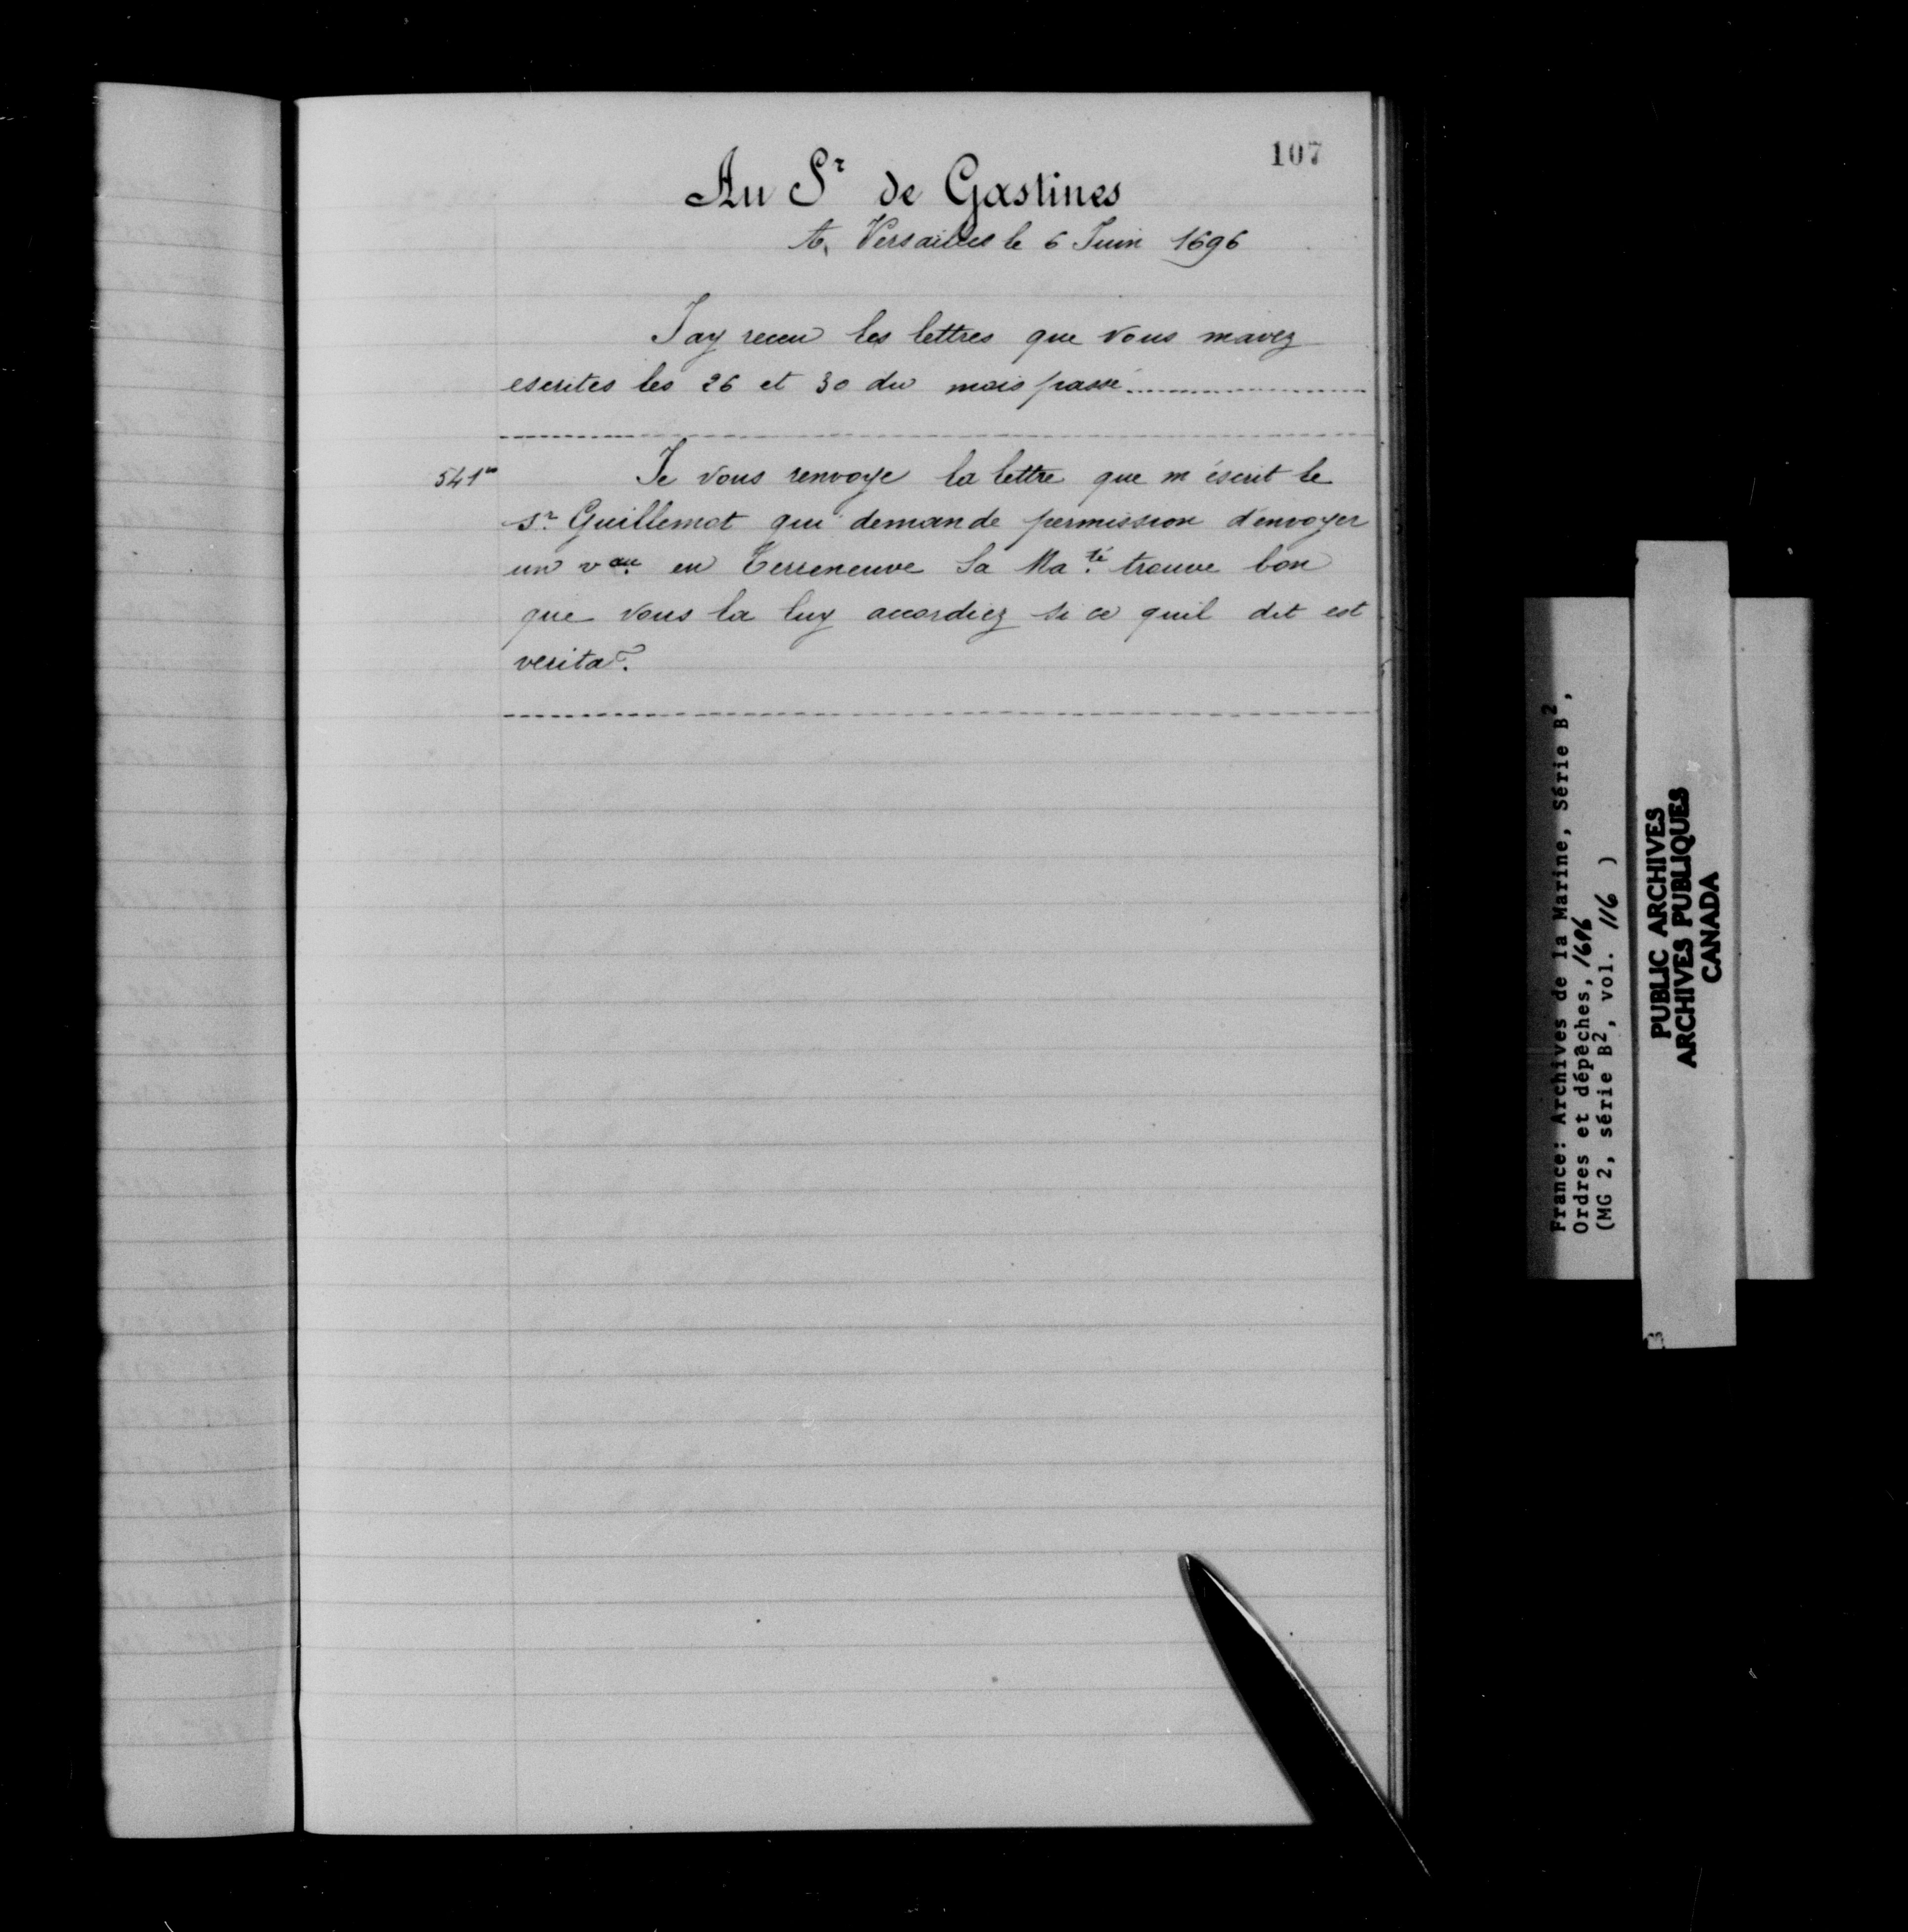 107
Au Sr de Gastines
A Versailles le 6 Juin 1696
Jay receu les lettres que vous mavez
escrites les 26 et 30 du mois passé
541 Je vous renvoye la lettre que m'éscrit le
sr Guillemot qui demande permission d'envoyer
un vau en Terreneuve Sa Maté trouve bon
que vous la luy accordiez si ce quil dit est
France: Archives de la Marine, Série B2,
Ordres et dépêches, 1696
(MG 2, série B2, vol. 116 )
PUBLIC ARCHIVES
ARCHIVES PUBLIQUES
CANADA